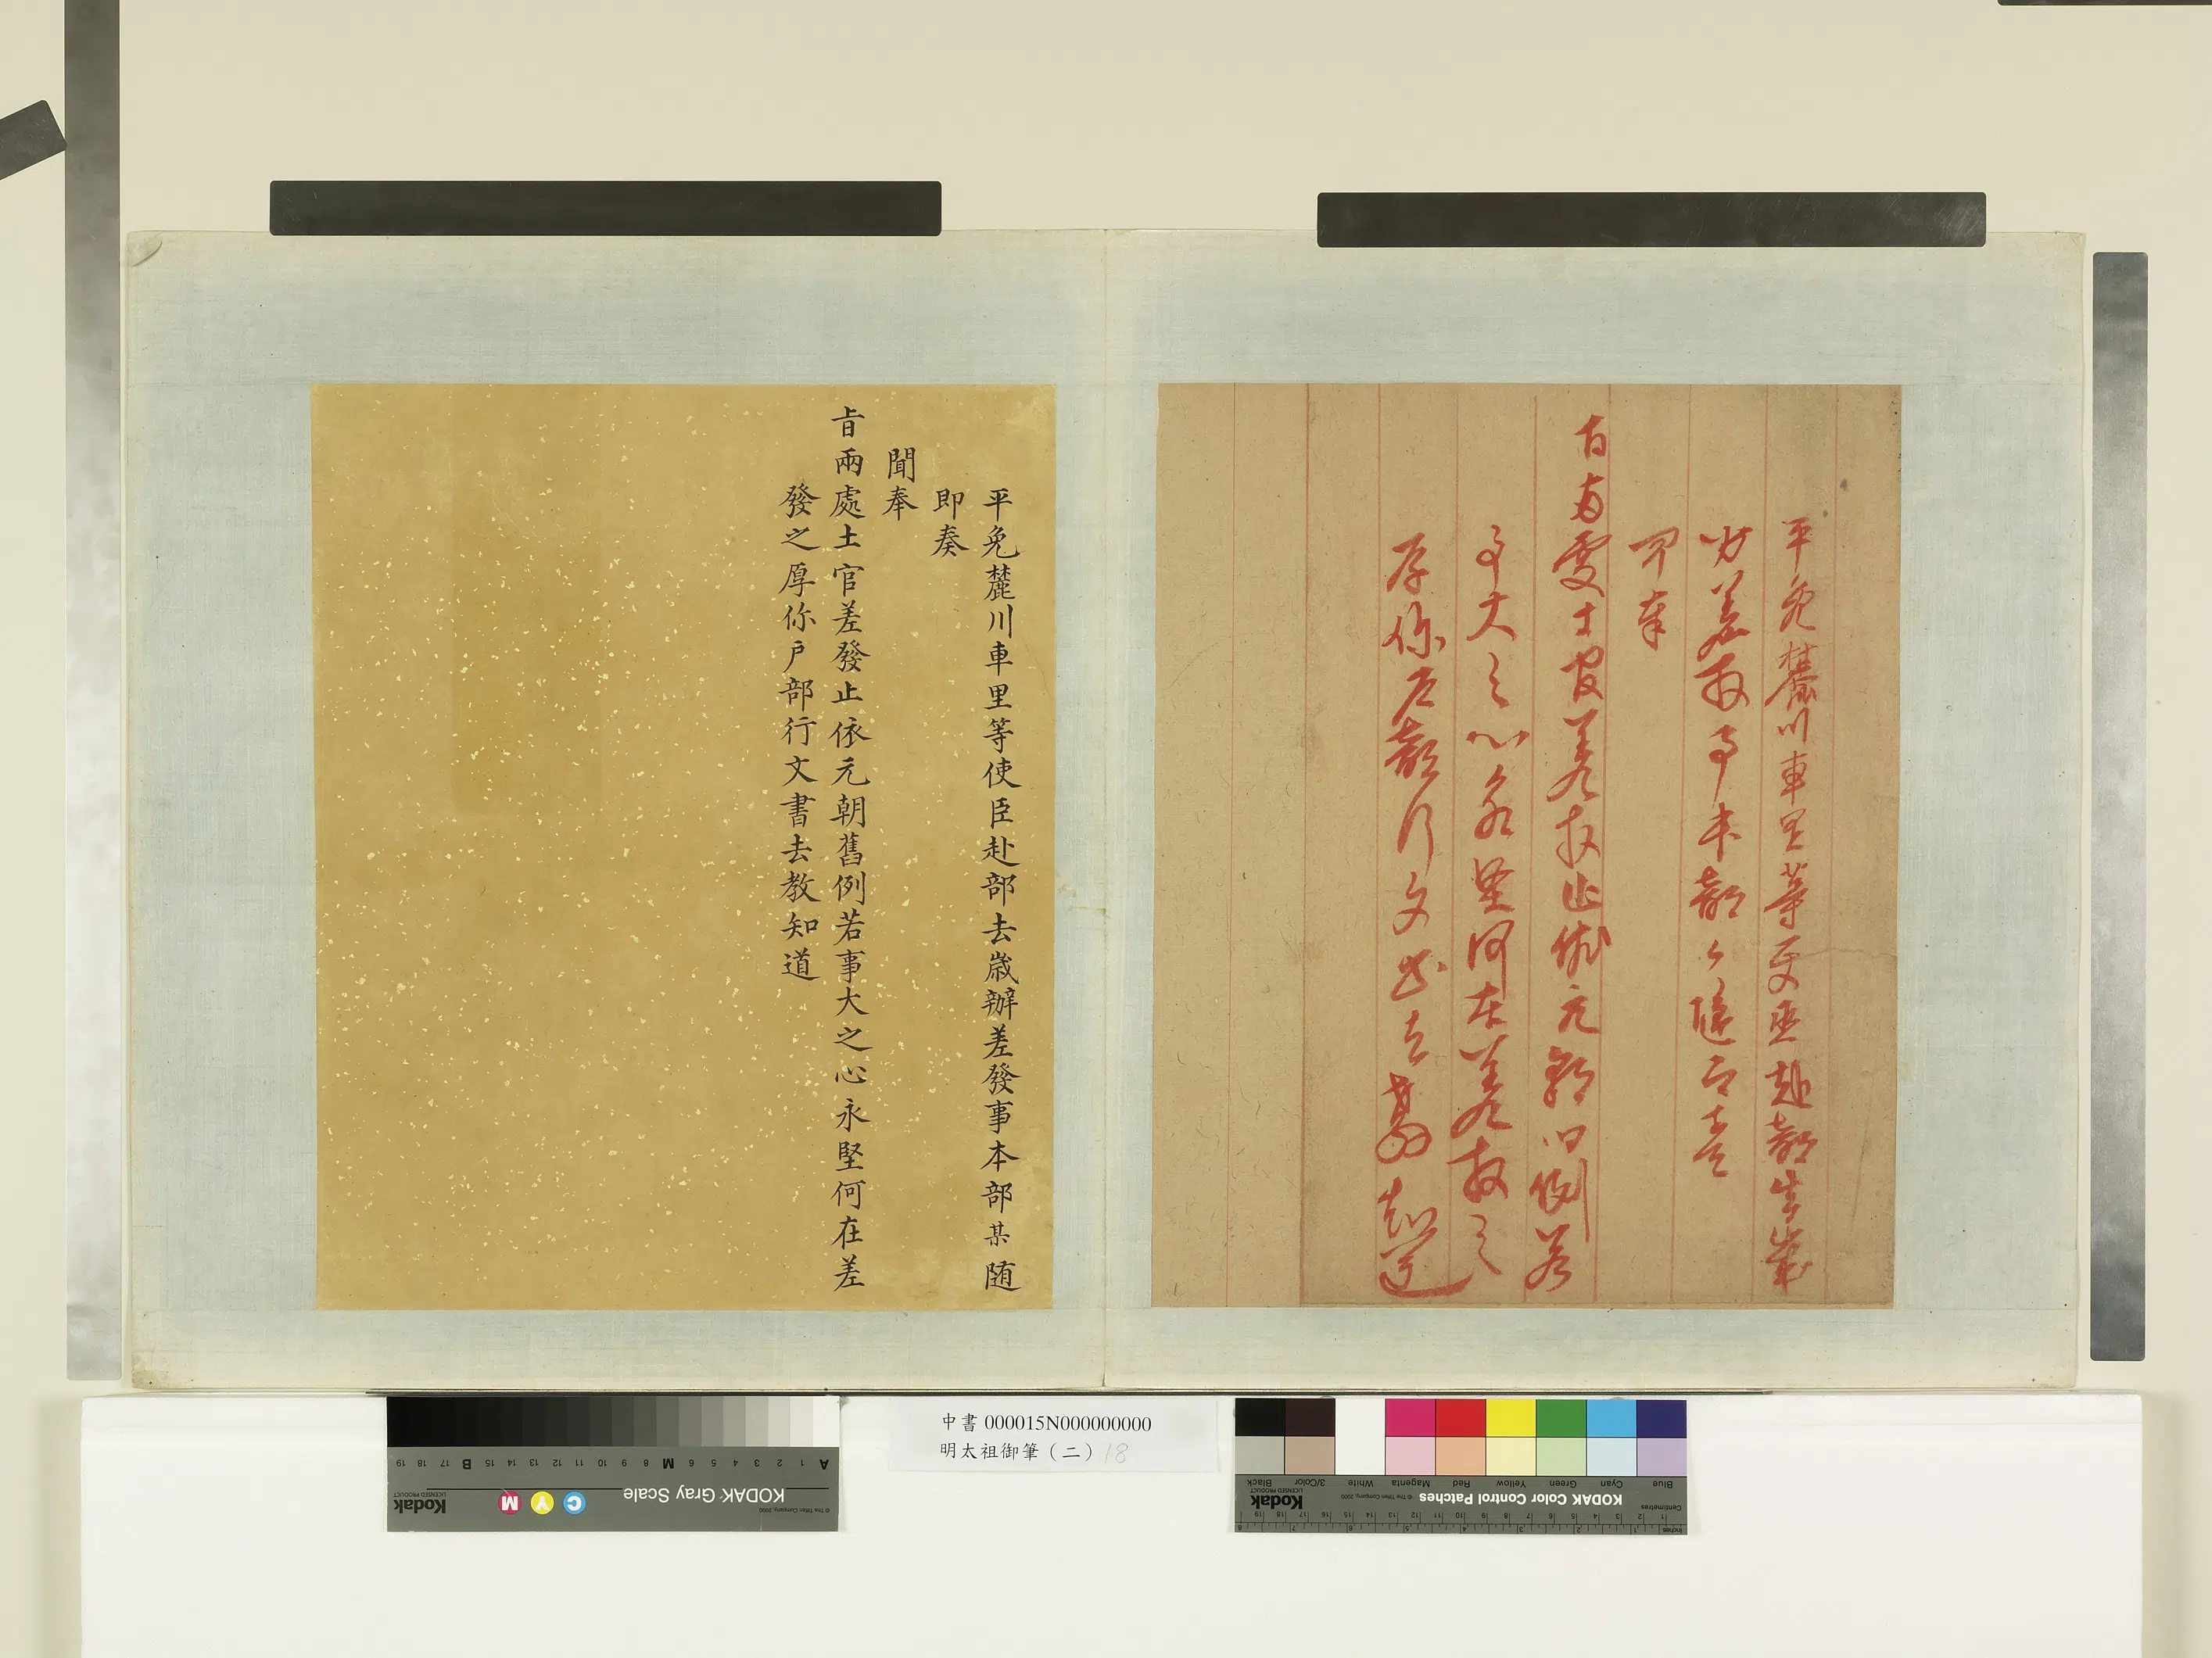 平免麓川車里等使臣赴部去歲
辦差發事本部ㄙ隨即奏
聞奉
旨兩處土官差發止依元朝旧例若
事大之心永堅何在差發之
厚你户部行文书去教知道
平免麓川車里等使臣赴部去歲辦差發事本部某随
即奏
聞奉
旨兩處土官差發止依元朝舊例若事大之心永堅何在差
發之厚你戶部行文書去教知道
中書 000015N000000000
明太祖御筆（二）18
KODAK Gray Scale
Kodak
LICENSED PRODUCT
C Y M
© The Tiffen Company, 2000
A 1 2 3 4 5 6 M 8 9 10 11 12 13 14 15 B 17 18 19
KODAK Color Control Patches
Kodak
LICENSED PRODUCT
© The Tiffen Company, 2000
Blue Cyan Green Yellow Red Magenta White 3/Color Black
Centimetres
Inches